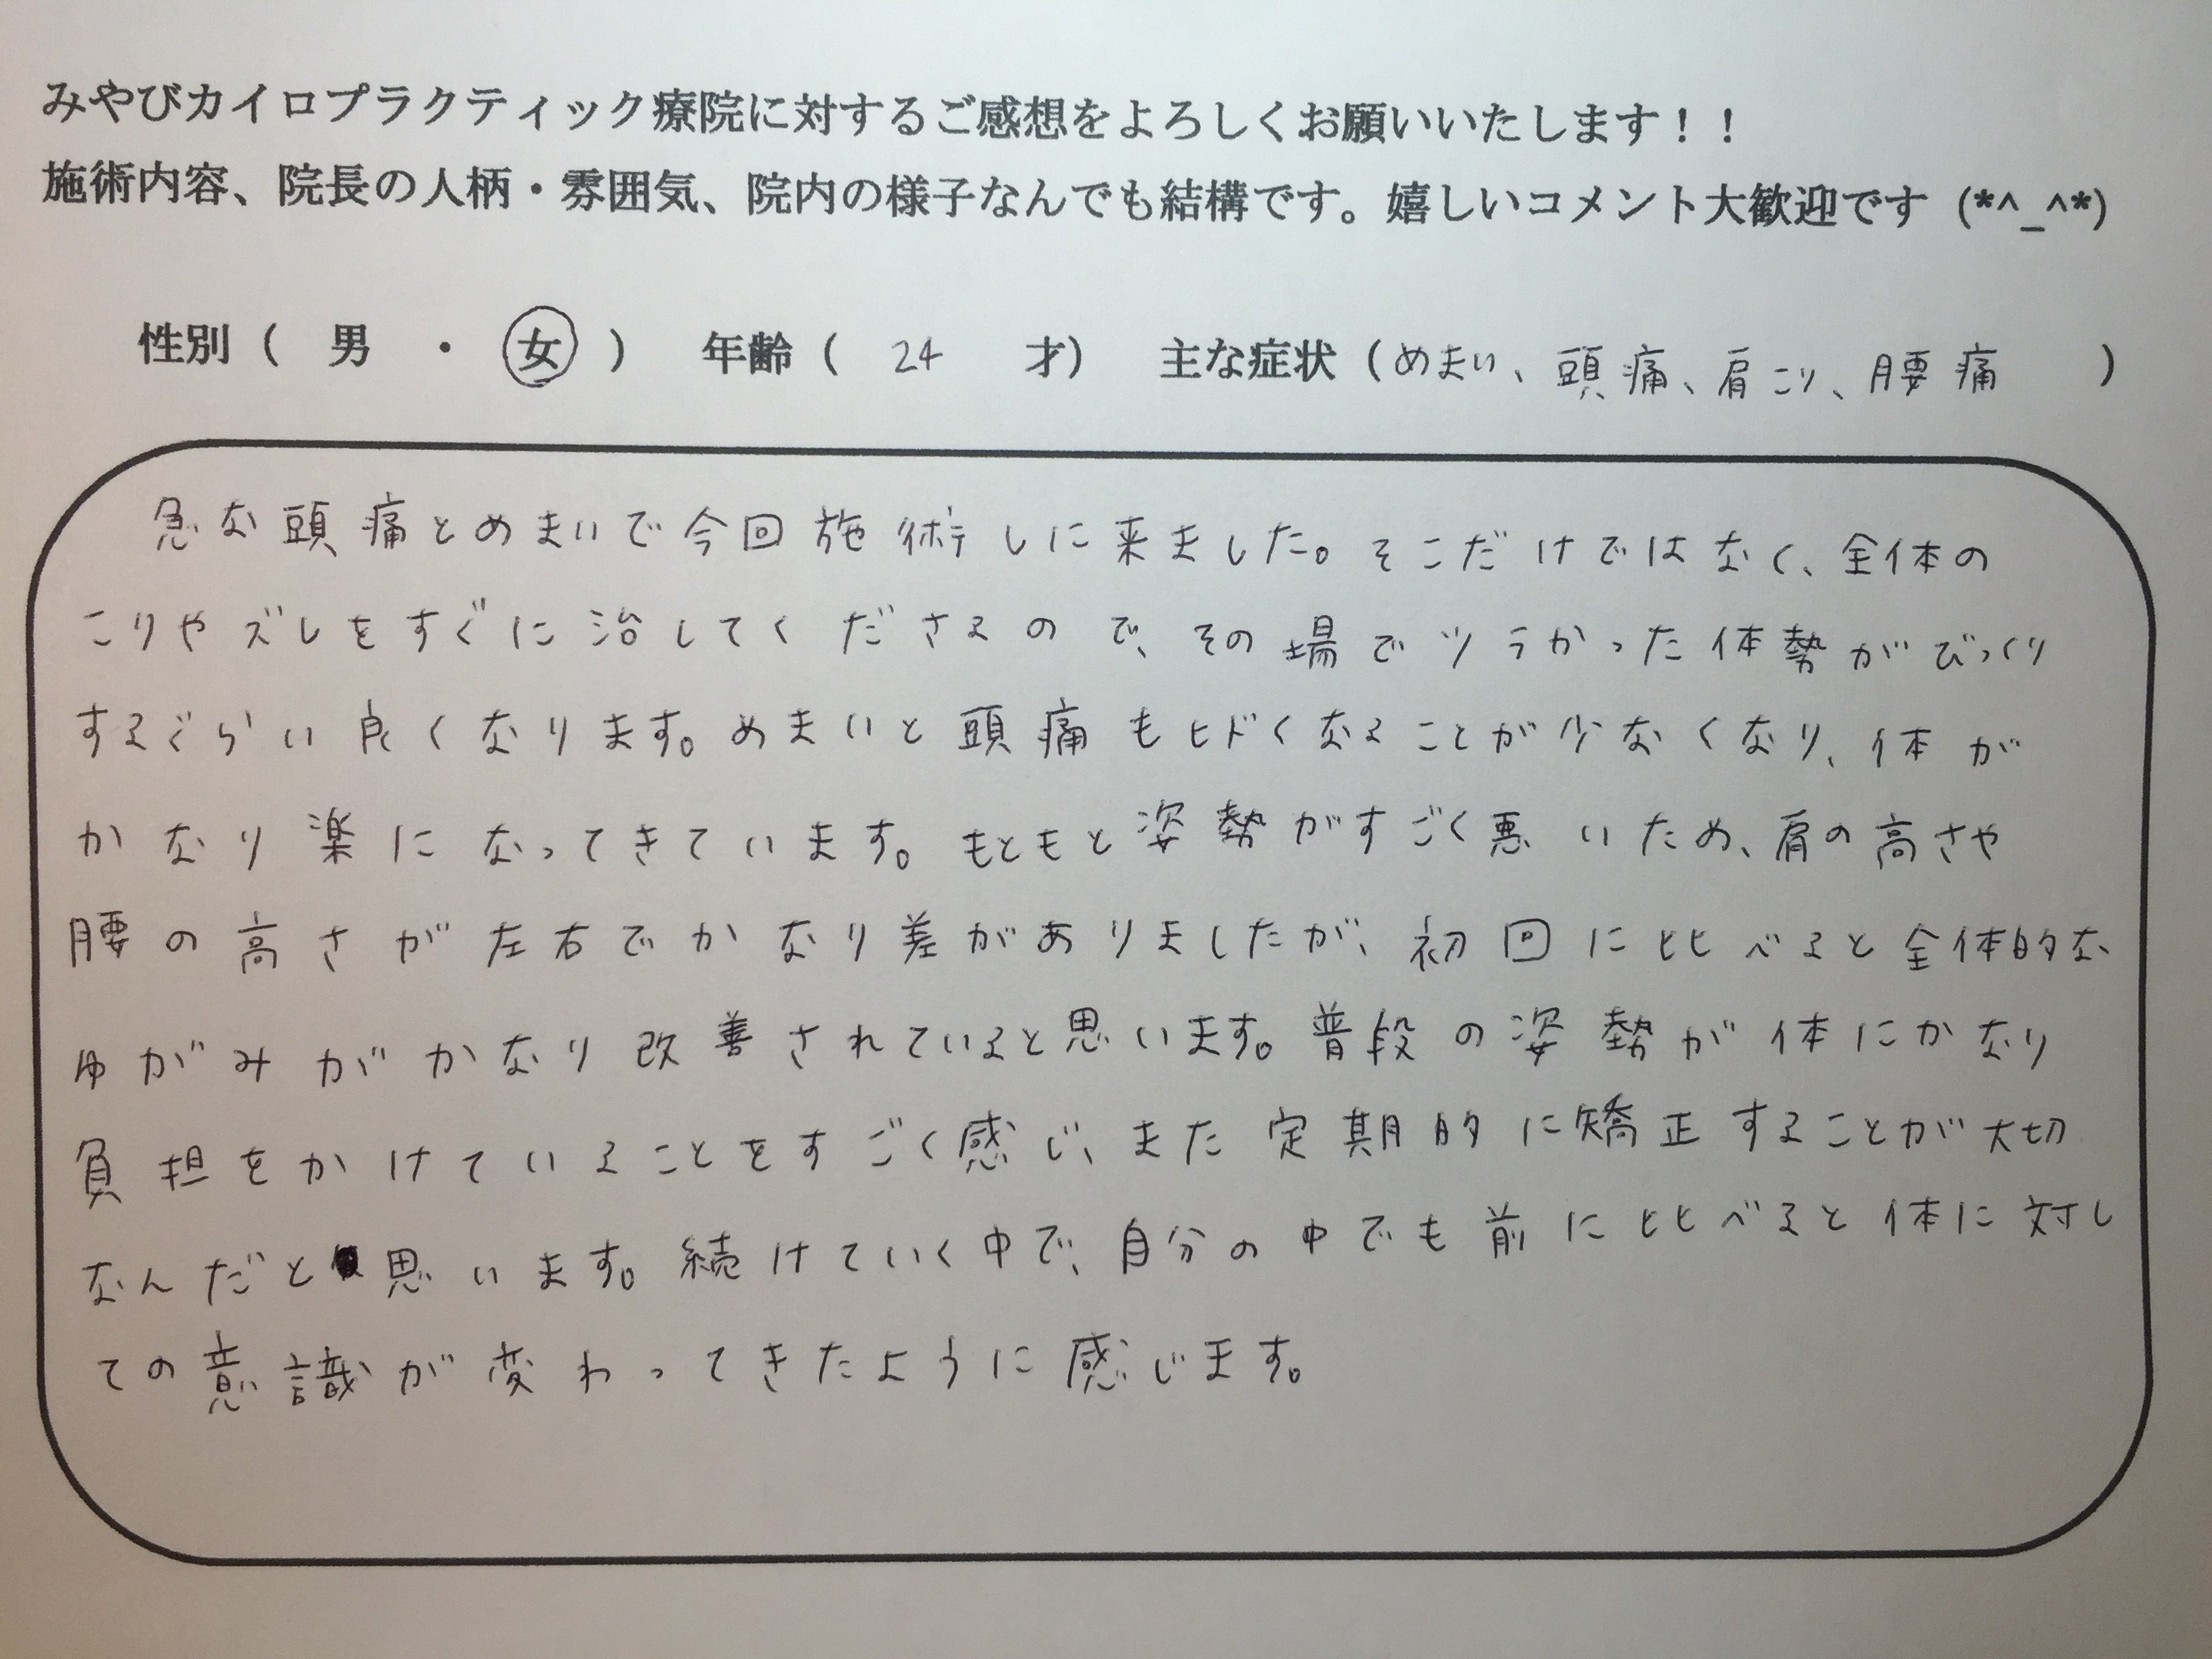 みやびカイロプラクティック療院に対するご感想をよろしくお願いいたします！！
施術内容、院長の人柄・雰囲気、院内の様子なんでも結構です。嬉しいコメント大歓迎です (*^_^*)
性別（ 男 ・ 女 ） 年齢（ 24 才） 主な症状（めまい、頭痛、肩こり、腰痛 ）
急な頭痛とめまいで今回施術しに来ました。そこだけではなく、全体の
こりやズレをすぐに治してくださるので、その場でツラかった体勢がびっくり
するぐらい良くなります。めまいと頭痛もヒドくなることが少なくなり、体が
かなり楽になってきています。もともと姿勢がすごく悪いため、肩の高さや
腰の高さが左右でかなり差がありましたが、初回に比べると全体的な
ゆがみがかなり改善されていると思います。普段の姿勢が体にかなり
負担をかけていることをすごく感じ、また定期的に矯正することが大切
なんだと思います。続けていく中で、自分の中でも前に比べると体に対し
ての意識が変わってきたように感じます。